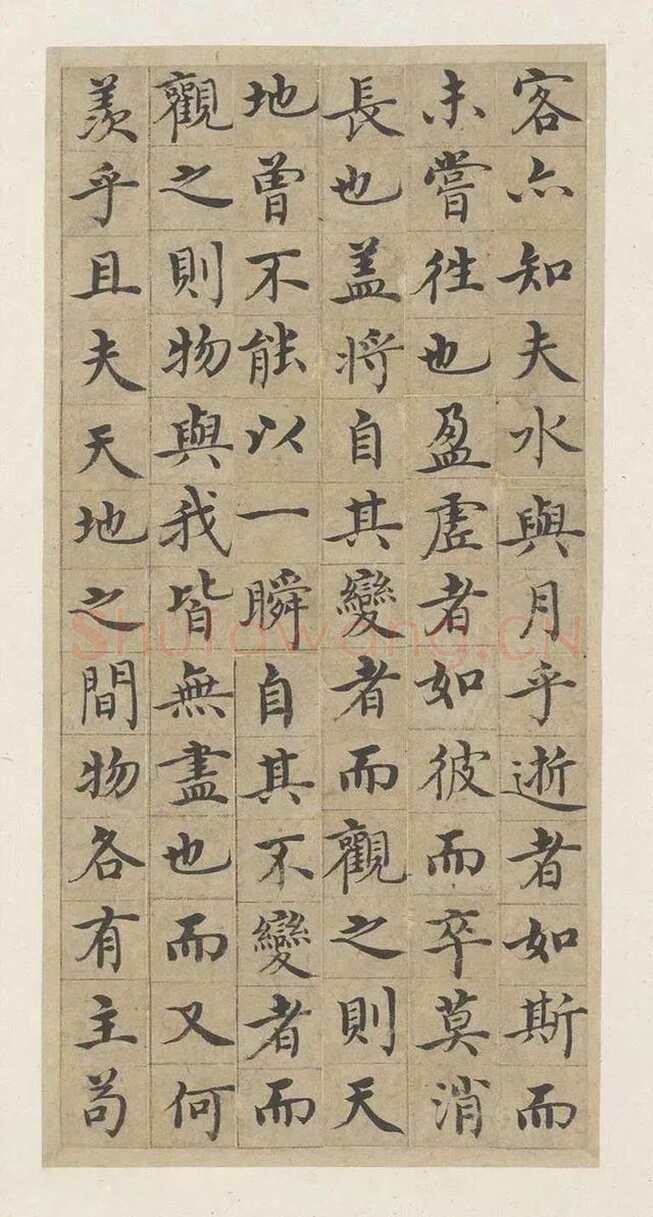 客亦知夫水與月乎逝者如斯而
未嘗往也盈虛者如彼而卒莫消
長也盖將自其變者而觀之則天
地曾不能以一瞬自其不變者而
觀之則物與我皆無盡也而又何
羨乎且夫天地之間物各有主苟
Shufawang.CN